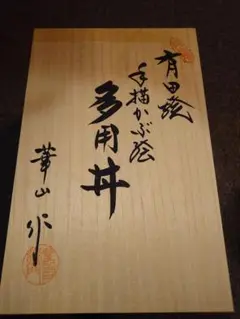 有田焼
手描かぶ絵
多用丼
華山作